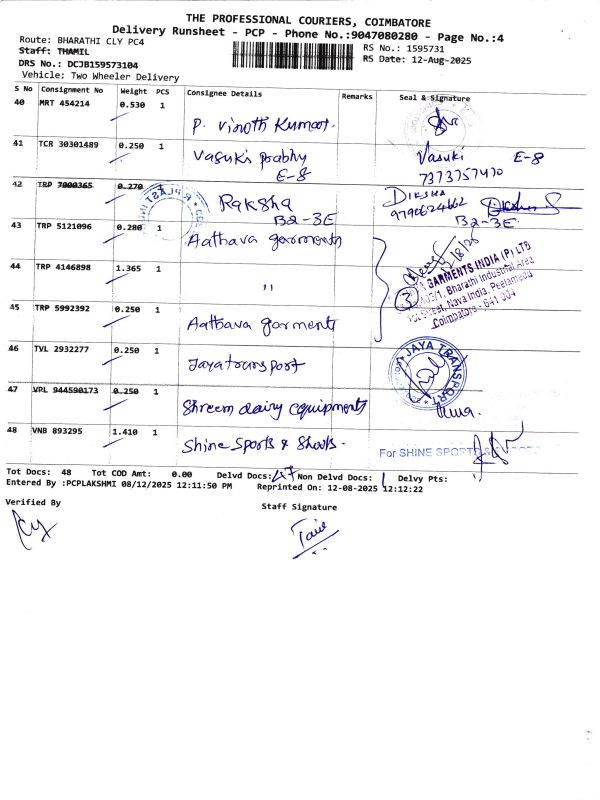 THE PROFESSIONAL COURIERS, COIMBATORE
Delivery Runsheet - PCP - Phone No.:9047080280 - Page No.:4
Route: BHARATHI CLY PC4
RS No.: 1595731
Staff: THAMIL
RS Date: 12-Aug-2025
DRS No.: DCJB159573104
Vehicle: Two Wheeler Delivery
S No Consignment No Weight PCS Consignee Details Remarks Seal & Signature
40 MRT 454214 0.530 1
P. Vinoth Kumar.
41 TCR 30301489 0.250 1
Vasuki prabhu
E-8
Vasuki E-8
7373757470
42 TRP 7000365 0.270 1
Raksha
B2-3E
DIKSHA
9790624662
B2-3E
43 TRP 5121096 0.280 1
Aathava garments
44 TRP 4146898 1.365 1
"
GARMENTS INDIA (P) LTD
Bharathi Industrial Area
Street, Nava India, Peelamedu
Coimbatore - 641 004
45 TRP 5992392 0.250 1
Aathava garments
46 TVL 2932277 0.250 1
Jayatransport
JAYA TRANSPORT
47 VPL 944590173 0.250 1
Shreem dairy equipments
48 VNB 893295 1.410 1
Shine Sports & Shoots.
For SHINE SPORTS &
Tot Docs: 48 Tot COD Amt: 0.00 Delvd Docs: 47 Non Delvd Docs: 1 Delvy Pts:
Entered By :PCPLAKSHMI 08/12/2025 12:11:50 PM Reprinted On: 12-08-2025 12:12:22
Verified By
Staff Signature